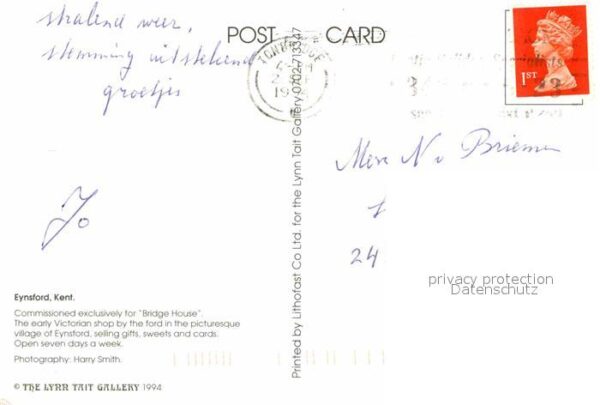 stralend weer,
stemming uitstekend
groetjes
Jo
POST CARD
1ST
Mevr N v
24
privacy protection
Datenschutz
Eynsford, Kent.
Commissioned exclusively for "Bridge House".
The early Victorian shop by the ford in the picturesque
village of Eynsford, selling gifts, sweets and cards.
Open seven days a week.
Photography: Harry Smith.
© THE LYNN TAIT GALLERY 1994
Printed by Lithofast Co Ltd. for the Lynn Tait Gallery 0702-713347